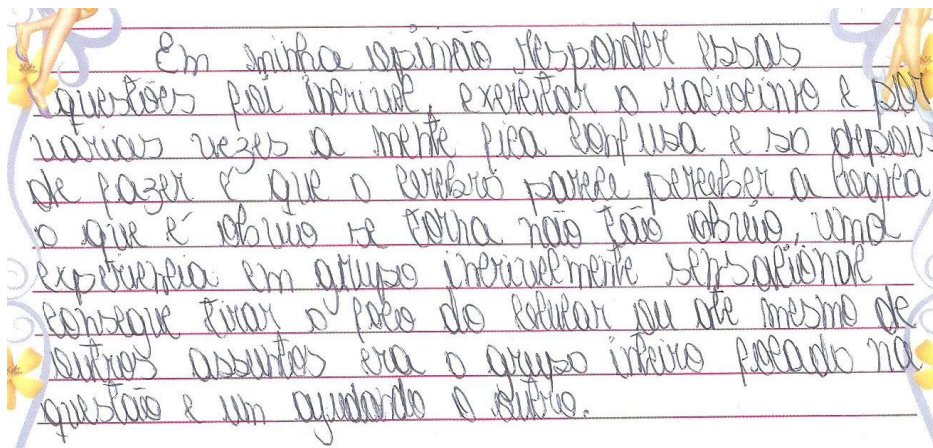 Em minha opinião responder essas
questões foi incrivel, exercitar o raciocinio e por
varias vezes a mente fica confusa e so depois
de fazer é que o cerebro parece perceber a logica
o que é obvio se torna não tão obvio, uma
experiencia em grupo incrivelmente sensacional
consegue tirar o foco do celular ou ate mesmo de
outros assuntos era o grupo inteiro focado na
questão e um ajudando o outro.